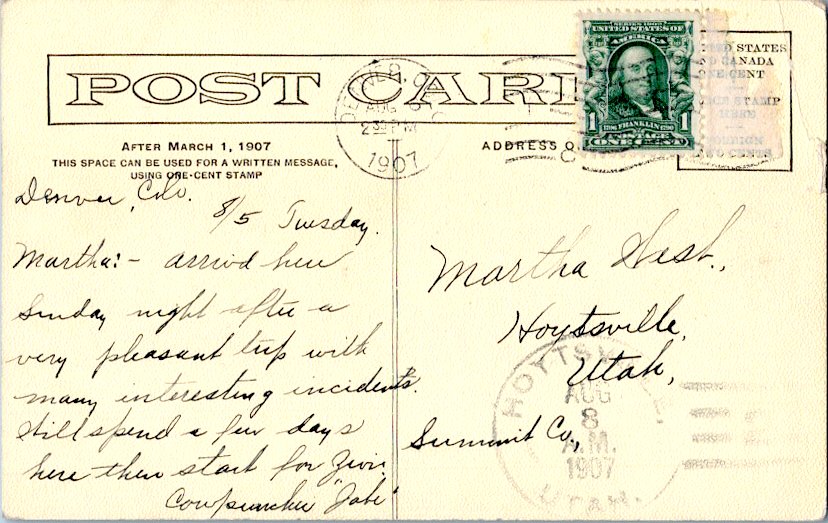 POST CARD
AFTER MARCH 1, 1907
THIS SPACE CAN BE USED FOR A WRITTEN MESSAGE,
USING ONE-CENT STAMP
ADDRESS O
DENVER, COLO
AUG 6
2 30 PM
1907
SERIES 1902
UNITED STATES OF
AMERICA
1706 FRANKLIN 1790
POSTAGE
1 1
ONE CENT
STATES
CANADA
CENT
STAMP
HERE
CENTS
Denver, Colo.
8/5 Tuesday.
Martha:- arrivd here
Sunday night after a
very pleasant trip with
many interesting incidents.
Still spend a few days
here then start for Zion.
Cowpuncher "Jake"
Martha
Hoytsville,
Utah,
Summit Co.,
HOYTSVILLE
AUG
8
A.M.
1907
UTAH.